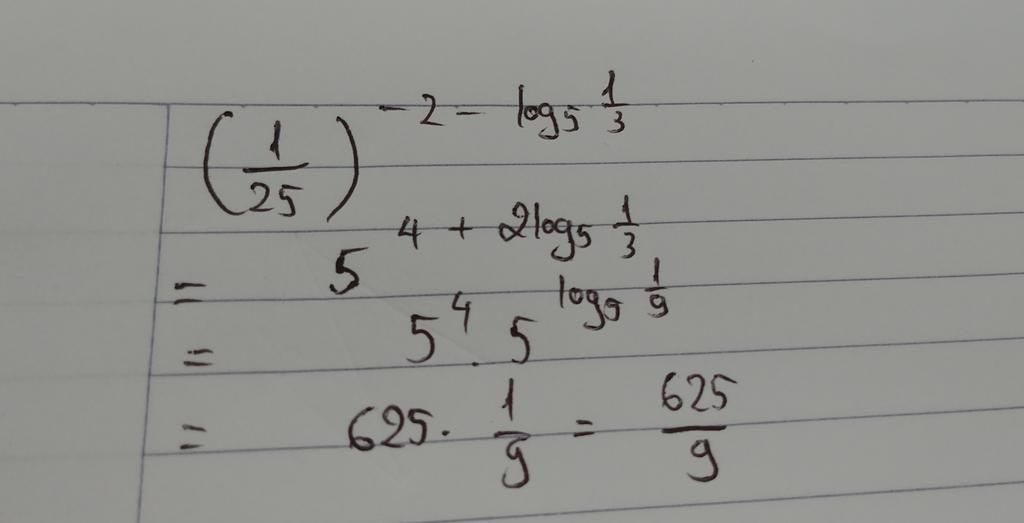 (1/25)^(-2 - log₅ 1/3)
= 5^(4 + 2log₅ 1/3)
= 5^4 . 5^(log₅ 1/9)
= 625 . 1/9 = 625/9